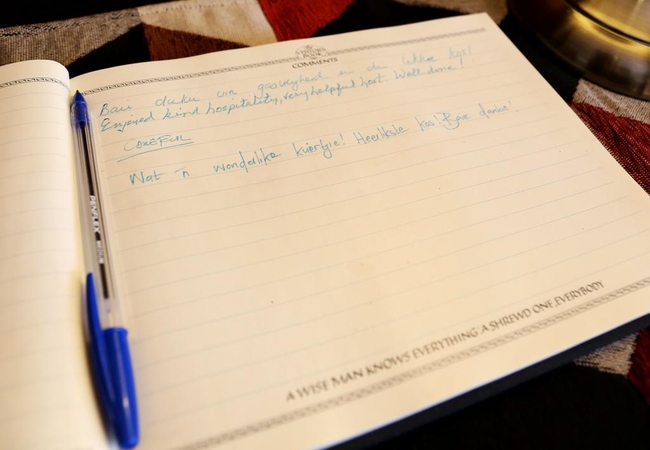 COMMENTS
Baie dankie vir gasvryheid en die lekker kos!
Enjoyed kind hospitality, very helpful host. Well done!
Wat 'n wonderlike kuiertjie! Heerlikste kos! Baie dankie!
A WISE MAN KNOWS EVERYTHING A SHREWD ONE, EVERYBODY